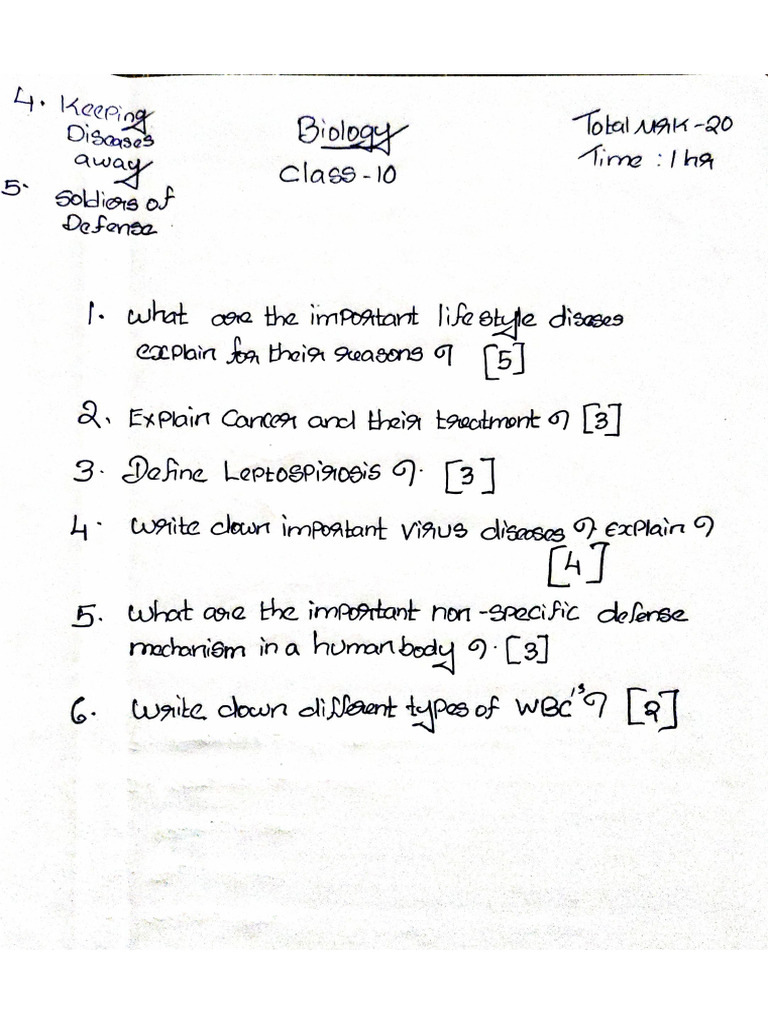 4. Keeping
Diseases
away
5. Soldiers of
Defense
Biology
Class-10
Total Mrk-20
Time : 1 hr
1. What are the important life style diseses
explain for their reasons ? [5]
2. Explain Cancer and their treatment ? [3]
3. Define Leptospirosis ?. [3]
4. Write down important virus diseases ? explain ?
[4]
5. What are the important non-specific defense
mechanism in a human body ?. [3]
6. Write down different types of WBC's ? [2]